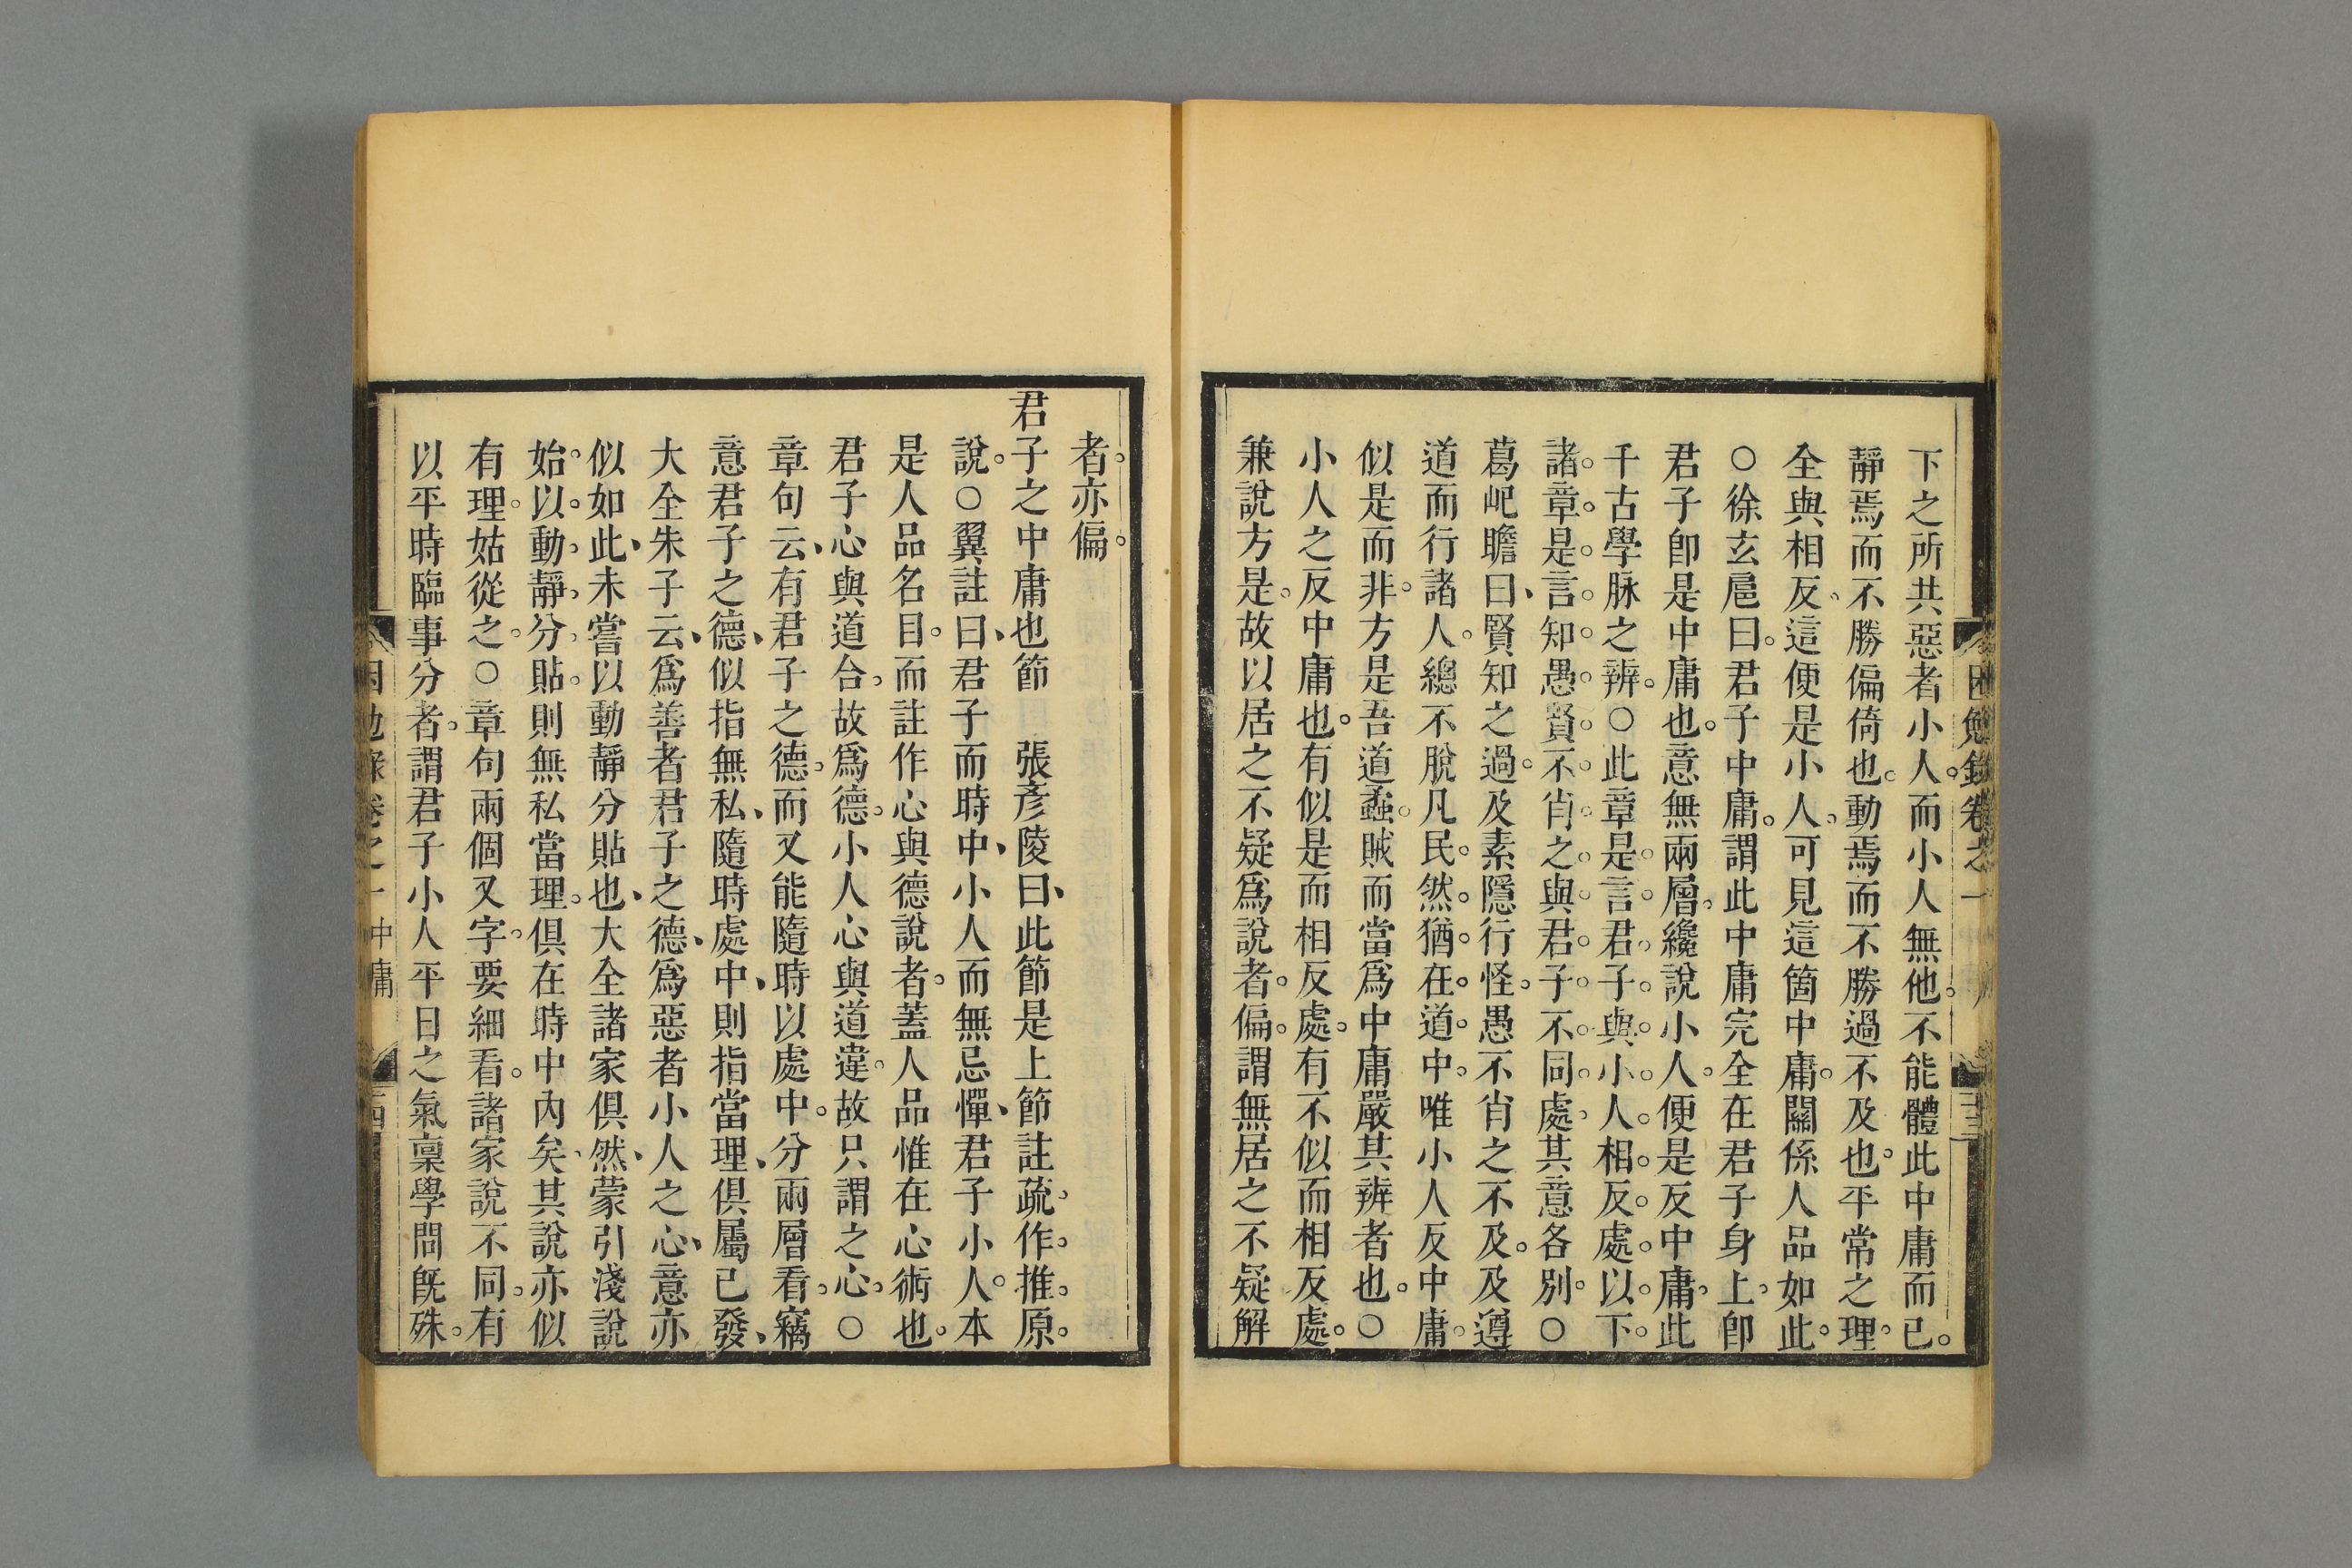 下之所共惡者小人。而小人無他。不能體此中庸而已。
靜焉而不勝偏倚也。動焉而不勝過不及也。平常之理。
全與相反、這便是小人。可見這箇中庸。關係人品如此。
○徐玄扈曰。君子中庸。謂此中庸完全在君子身上。卽
君子卽是中庸也。意無兩層。纔說小人。便是反中庸。此
千古學脉之辨。○此章是言君子與小人相反處。以下
諸章是言知愚賢不肖之與君子不同處。其意各別。○
葛屺瞻曰、賢知之過。及素隱行怪。愚不肖之不及。及遵
道而行諸人。總不脫凡民。然猶在道中。唯小人反中庸。
似是而非。方是吾道蟊賊。而當爲中庸嚴其辨者也。○
小人之反中庸也。有似是而相反處。有不似而相反處。
兼說方是。故以居之不疑爲說者。偏。謂無居之不疑解
困勉錄卷之一
者。亦偏。
君子之中庸也節 張彥陵曰、此節是上節註疏。作推原。
說。○翼註曰、君子而時中、小人而無忌憚、君子小人。本
是人品名目。而註作心與德說者。蓋人品惟在心術也。
君子心與道合。故爲德。小人心與道違。故只謂之心。○
章句云、有君子之德。而又能隨時以處中。分兩層看。竊
意君子之德、似指無私、隨時處中、則指當理、俱屬已發、
大全朱子云、爲善者君子之德、爲惡者小人之心、意亦
似如此、未嘗以動靜分貼也、大全諸家俱然、蒙引淺說
始以動靜分貼。則無私當理。俱在時中內矣、其說亦似
有理。姑從之。○章句兩個又字。要細看。諸家說不同。有
以平時臨事分者。謂君子小人平日之氣稟學問旣殊。
困勉錄卷之一 中庸 二四